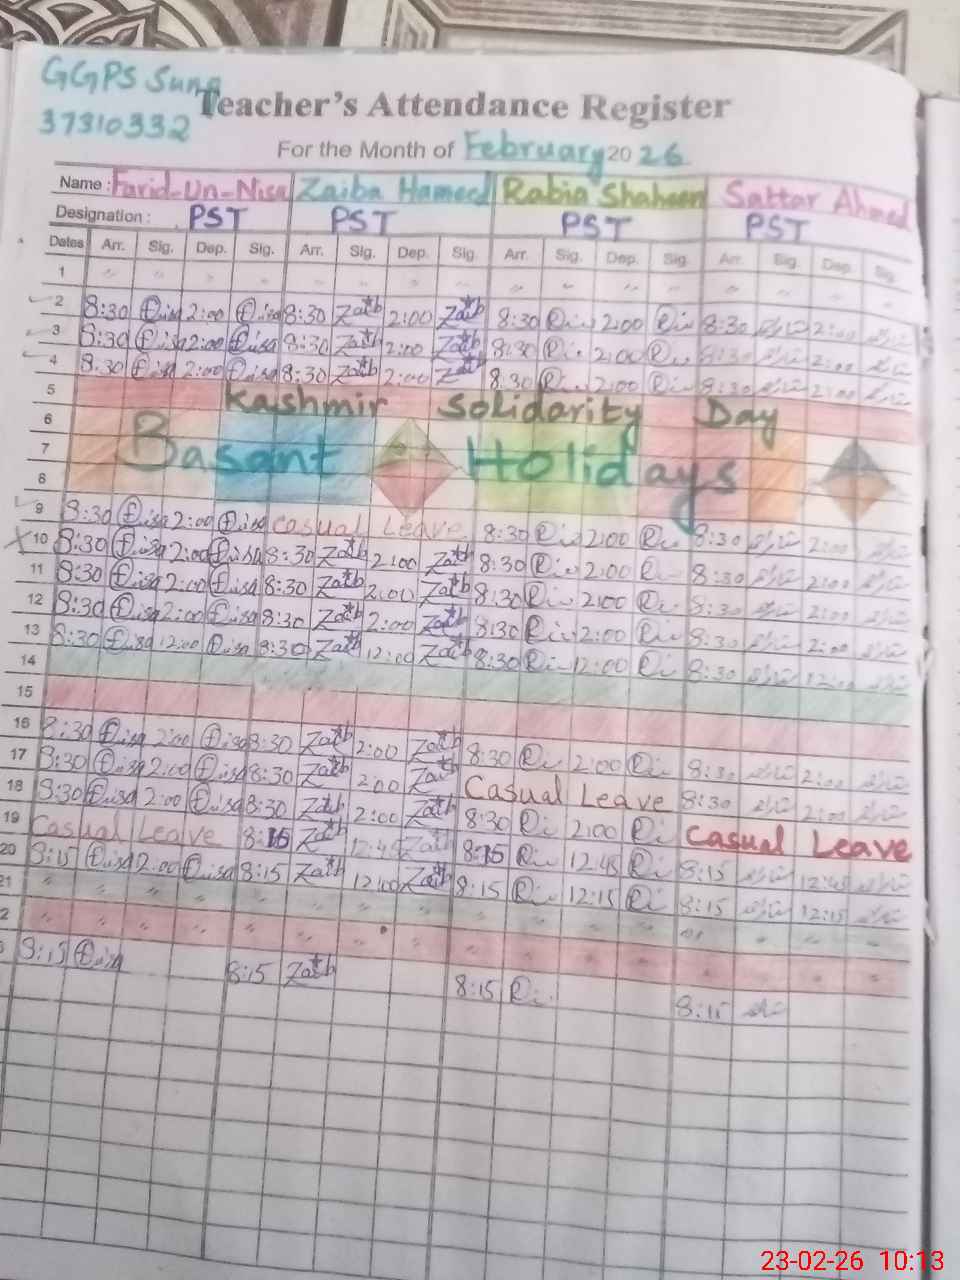 GGPS Sung
37310332
Teacher's Attendance Register
For the Month of February 2026
Name : Farid-Un-Nisa Zaiba Hameed Rabia Shaheen Sattar Ahmed
Designation : PST PST PST PST
Dates Arr. Sig. Dep. Sig. Arr. Sig. Dep. Sig. Arr. Sig. Dep. Sig. Arr. Sig. Dep. Sig.
1
2 8:30 2:00 8:30 Zaib 2:00 Zaib 8:30 2:00 8:30 2:00
3 8:30 2:00 8:30 Zaib 2:00 Zaib 8:30 2:00 8:30 2:00
4 8:30 2:00 8:30 Zaib 2:00 Zaib 8:30 2:00 8:30 2:00
5 Kashmir Solidarity Day
6
7 Basant Holidays
8
9 8:30 2:00 Casual Leave 8:30 2:00 8:30 2:00
10 8:30 2:00 8:30 Zaib 2:00 Zaib 8:30 2:00 8:30 2:00
11 8:30 2:00 8:30 Zaib 2:00 Zaib 8:30 2:00 8:30 2:00
12 8:30 2:00 8:30 Zaib 2:00 Zaib 8:30 2:00 8:30 2:00
13 8:30 12:00 8:30 Zaib 12:00 Zaib 8:30 12:00 8:30 12:00
14
15
16 8:30 2:00 8:30 Zaib 2:00 Zaib 8:30 2:00 8:30 2:00
17 8:30 2:00 8:30 Zaib 2:00 Zaib Casual Leave 8:30 2:00
18 8:30 2:00 8:30 Zaib 2:00 Zaib 8:30 2:00 Casual Leave
19 Casual Leave 8:15 Zaib 12:45 Zaib 8:15 12:45 8:15 12:45
20 8:15 2:00 8:15 Zaib 12:00 Zaib 8:15 12:15 8:15 12:15
21
2
3 8:15 8:15 Zaib 8:15 8:15
23-02-26 10:13